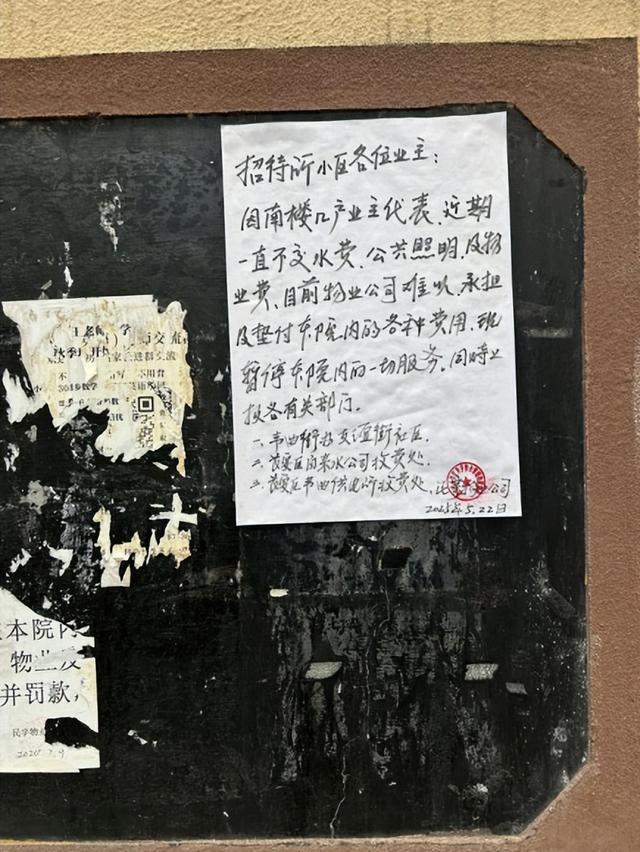 招待所小区各位业主：
因南楼几产业主代表、近期
一直不交水费、公共照明、及物
业费、目前物业公司难以承担
及垫付本院内的各种费用、现
暂停本院内的一切服务。同时上
报各有关部门。
一、韦曲街办友谊街社区.
二、长安区自来水公司收费处.
三、长安区韦曲供电所收费处.
公司
2025年5.22日
王老师
秋季
本院内
物业及
并罚款，
民学物业